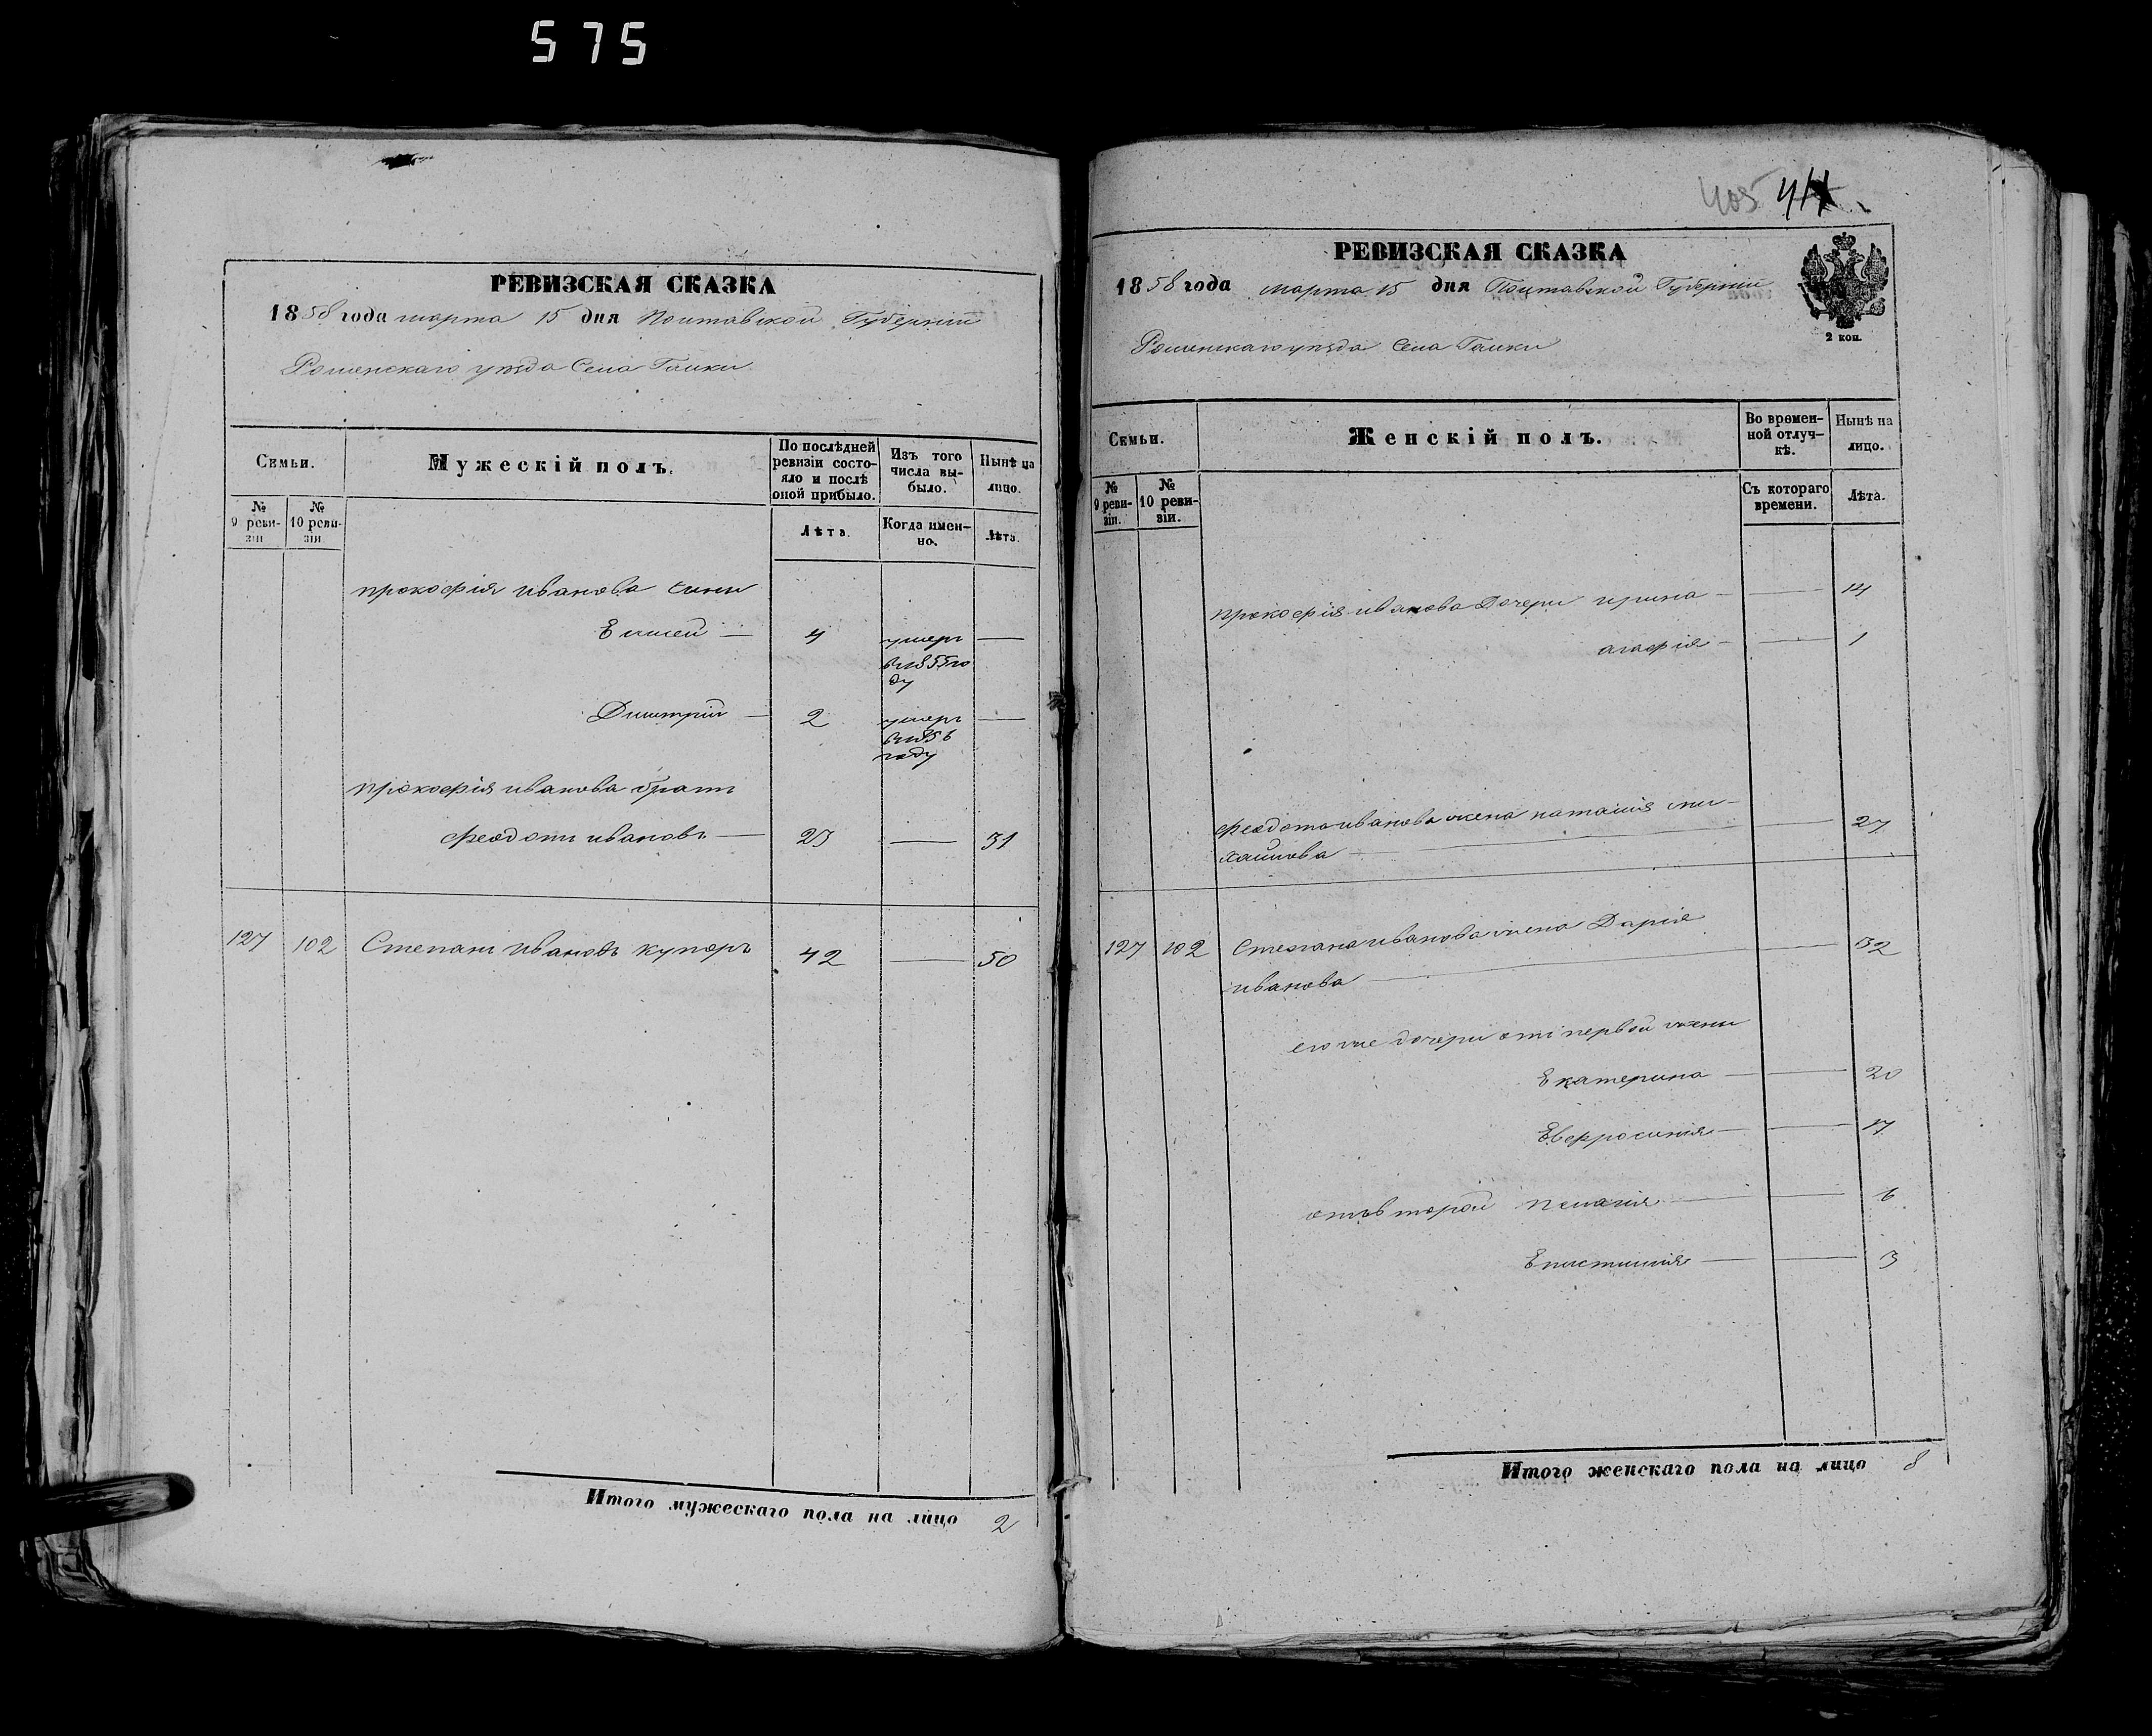 575
РЕВИЗСКАЯ СКАЗКА
1858 года марта 15 дня Полтавской Губернии
Роменскаго уѣзда Села Галки
Семьи.
Мужескій полъ.
По послѣдней ревизіи состо-
яло и послѣ
оной прибыло.
Изъ того
числа вы-
было.
Нынѣ на
лицо.
№
9 реви-
зіи
№
10 реви-
зіи
Лѣта.
Когда имен-
но.
Лѣта.
прокофія иванова сини
Елисей — 4 умеръ —
в 1855 го
ду
Димитрій — 2 умеръ —
в 1856
году
прокофія иванова братъ
Феодотъ ивановъ — 23 — 31
127 102 Степанъ Ивановъ купоръ 42 — 50
Итого мужескаго пола на лицо 2
405
РЕВИЗСКАЯ СКАЗКА
1858 года марта 15 дня Полтавской Губернии
2 коп.
Роменскаго уѣзда Села Галки
Семьи.
Женскій полъ.
Во времен-
ной отлуч-
кѣ.
Нынѣ на
лицо.
№
9 реви-
зіи.
№
10 реви-
зіи.
Съ котораго
времени.
Лѣта.
прокофія иванова Дочери ирина — — 14
агафія — — 1
Феодота иванова жена наталия ми-
хайлова — — 27
127 102 Степана иванова жена Дарія
иванова — — 32
его же дочери отъ первой жени
Екатерина — — 20
Евфросинія — — 17
отъ второй пелагія — — 6
Епистимия — — 3
Итого женскаго пола на лицо 8